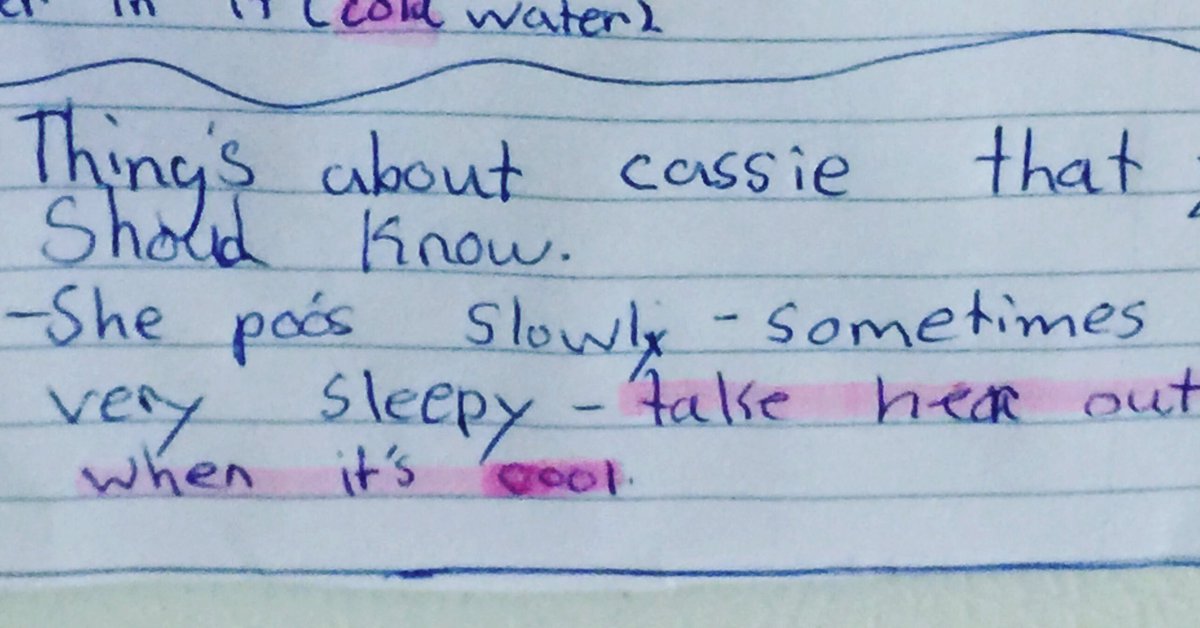 in it (cold water)
Thing's about cassie that
Should Know.
-She poo's slowly - sometimes
very sleepy - take her out
when it's cool.